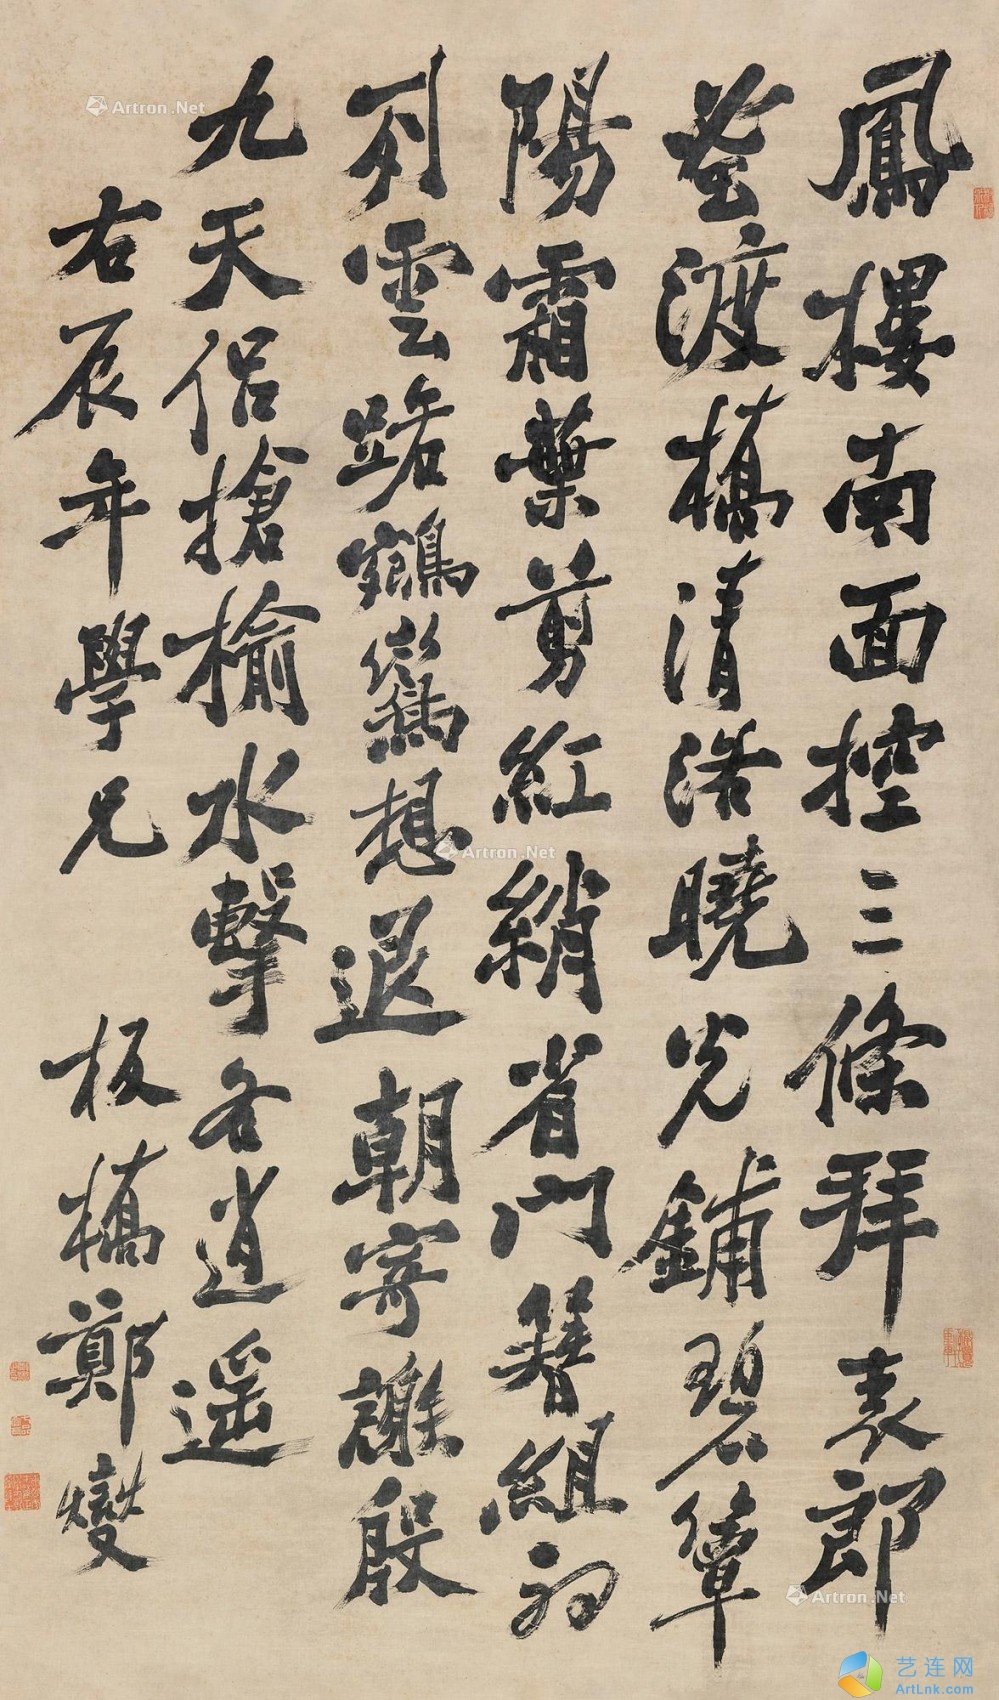 鳳樓南面控三條拜表郎
渡橋清洛曉光鋪碧簟
陽霜葉剪紅綃省門簪組初
列雲路鵷鸞想退朝寄謝殷
九天侶搶榆水擊各逍遥
右辰年學兄 板橋鄭燮
Artron.Net
Artron.Net
Artron.Net
艺连网
ArtLnk.com